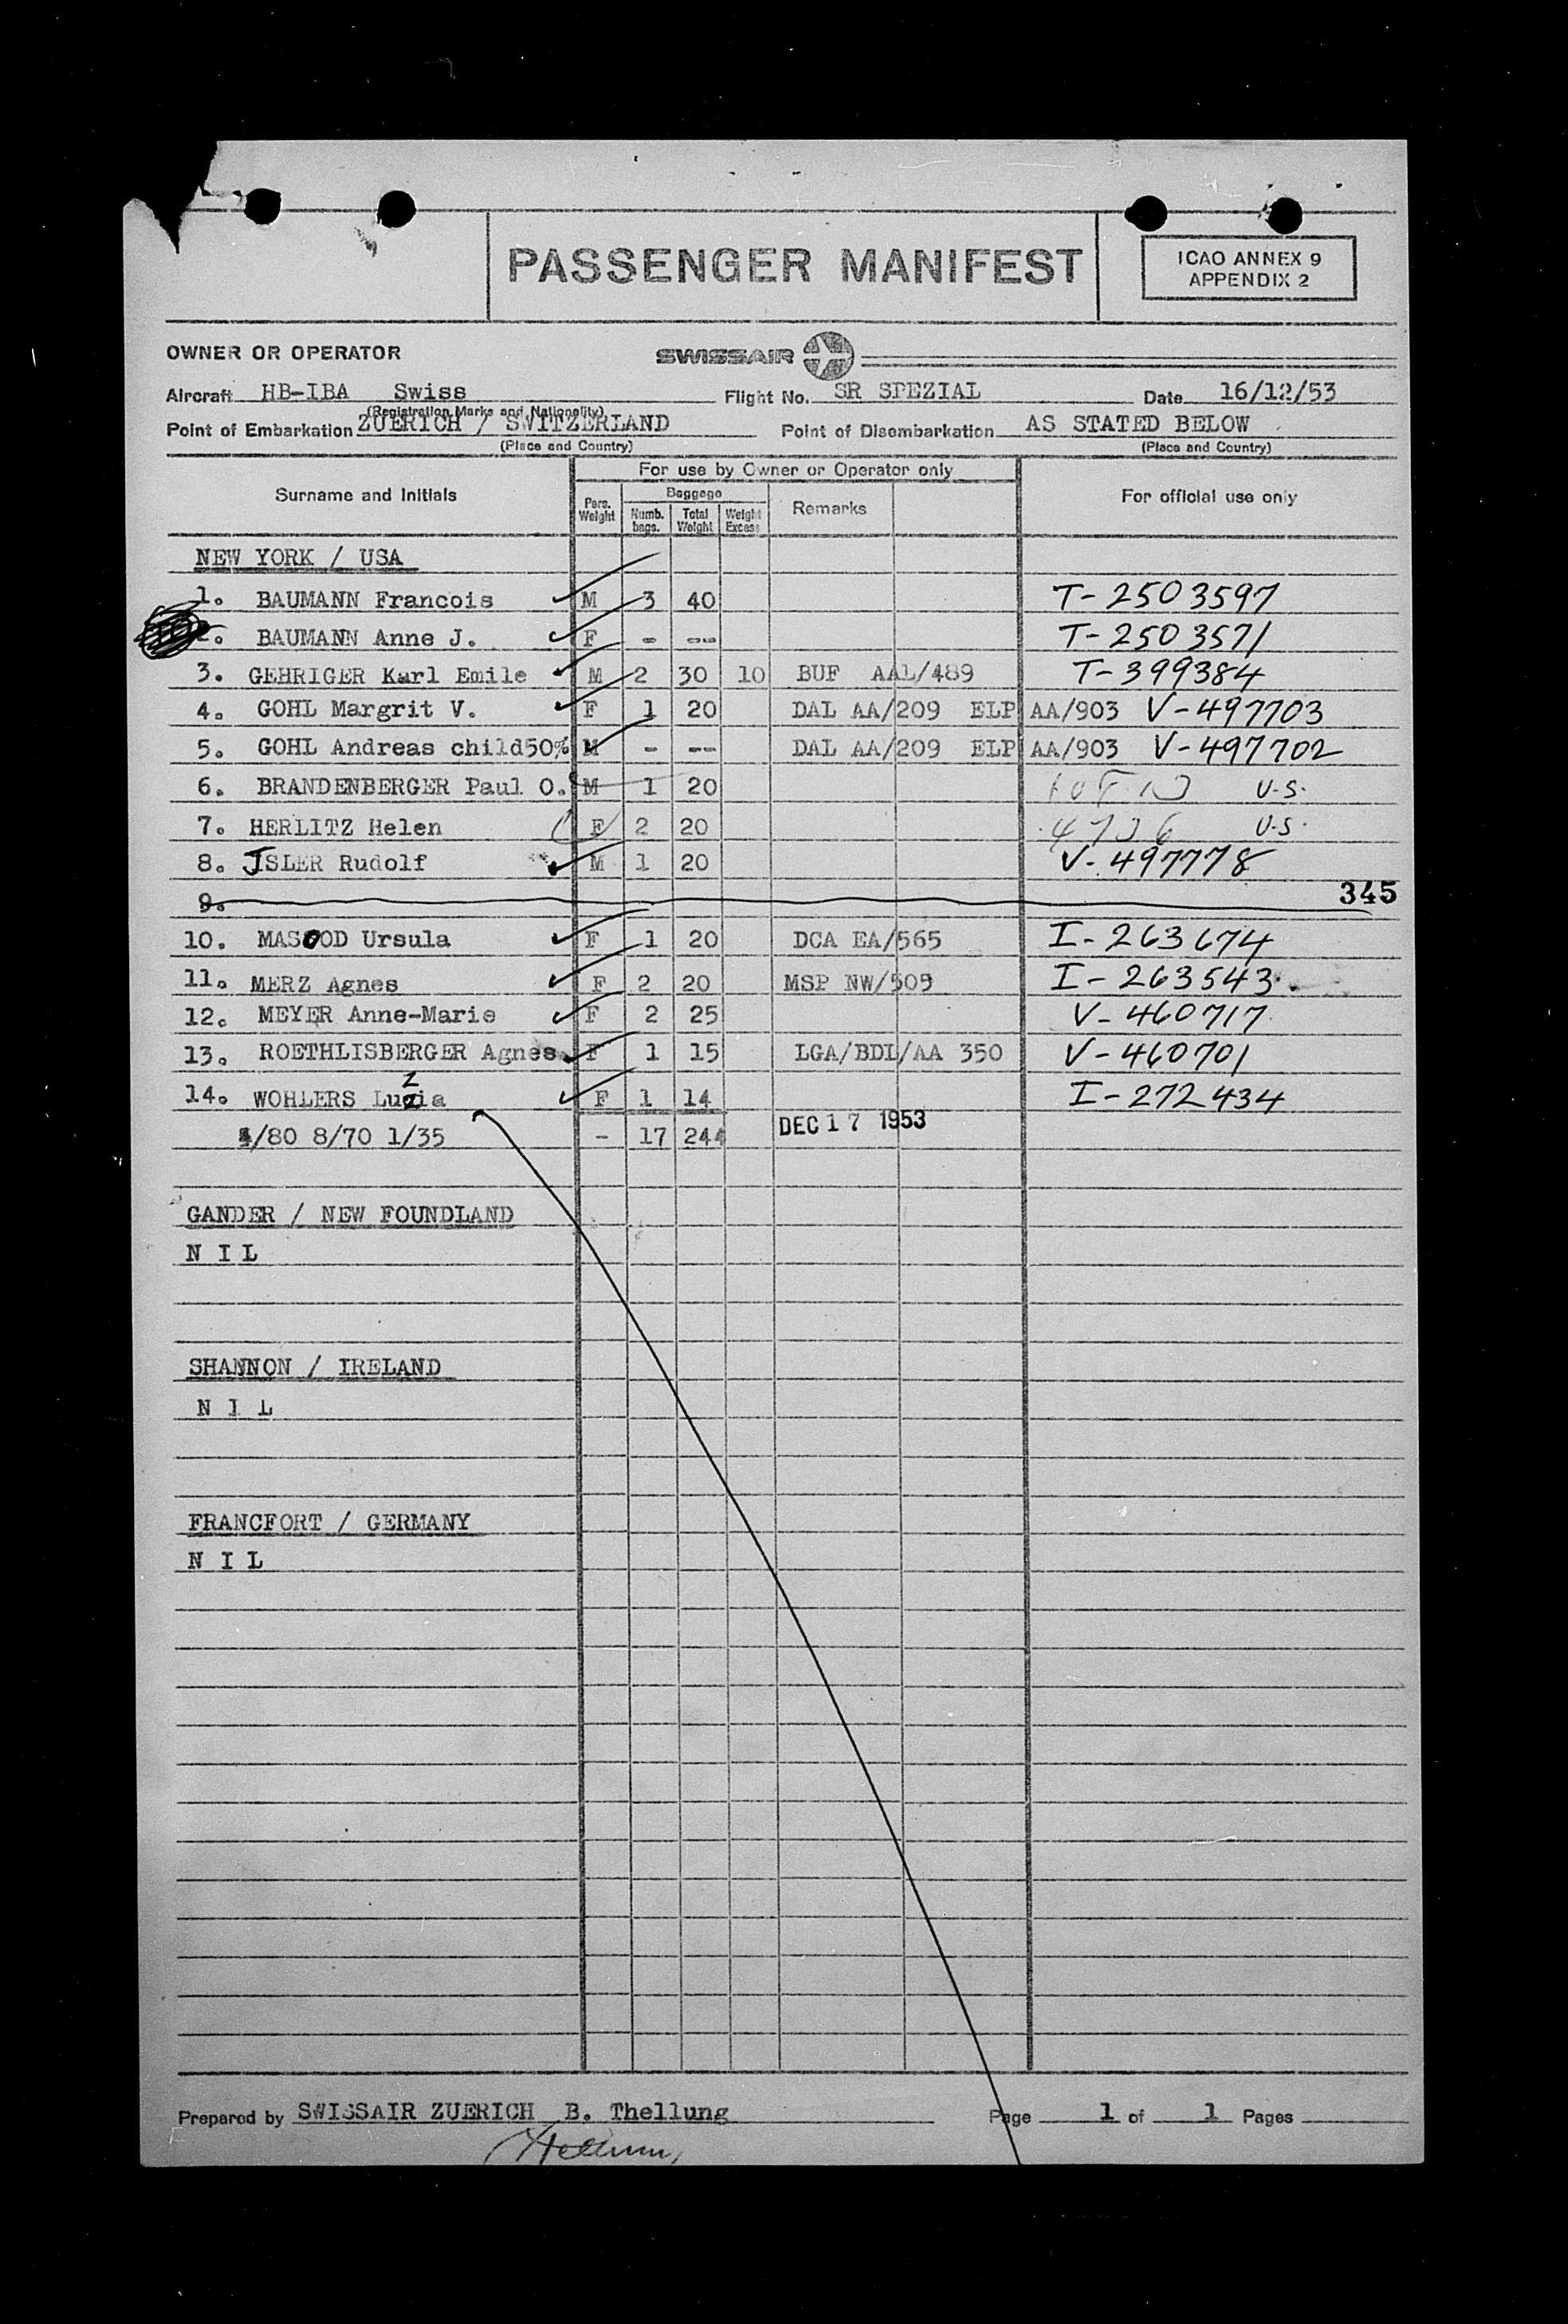 PASSENGER MANIFEST
ICAO ANNEX 9
APPENDIX 2
OWNER OR OPERATOR SWISSAIR
Aircraft HB-IBA Swiss Flight No. SR SPEZIAL Date 16/12/53
(Registration Marks and Nationality)
Point of Embarkation ZUERICH / SWITZERLAND Point of Disembarkation AS STATED BELOW
(Place and Country) (Place and Country)
Surname and Initials Pers. Weight For use by Owner or Operator only Baggage Numb. bags. Total Weight Weight Excess Remarks For official use only
NEW YORK / USA
1. BAUMANN Francois M 3 40 T-2503597
2. BAUMANN Anne J. F - -- T-2503571
3. GEHRIGER Karl Emile M 2 30 10 BUF AAL/489 T-399384
4. GOHL Margrit V. F 1 20 DAL AA/209 ELP AA/903 V-497703
5. GOHL Andreas child50% M - -- DAL AA/209 ELP AA/903 V-497702
6. BRANDENBERGER Paul O. M 1 20 U.S.
7. HERLITZ Helen F 2 20 U.S.
8. JSLER Rudolf M 1 20 V-497778
9. 345
10. MASOOD Ursula F 1 20 DCA EA/565 I-263674
11. MERZ Agnes F 2 20 MSP NW/505 I-263543
12. MEYER Anne-Marie F 2 25 V-460717
13. ROETHLISBERGER Agnes F 1 15 LGA/BDL/AA 350 V-460701
14. WOHLERS Luzia F 1 14 I-272434
/80 8/70 1/35 - 17 244 DEC 17 1953
GANDER / NEW FOUNDLAND
N I L
SHANNON / IRELAND
N I L
FRANCFORT / GERMANY
N I L
Prepared by SWISSAIR ZUERICH B. Thellung Page 1 of 1 Pages